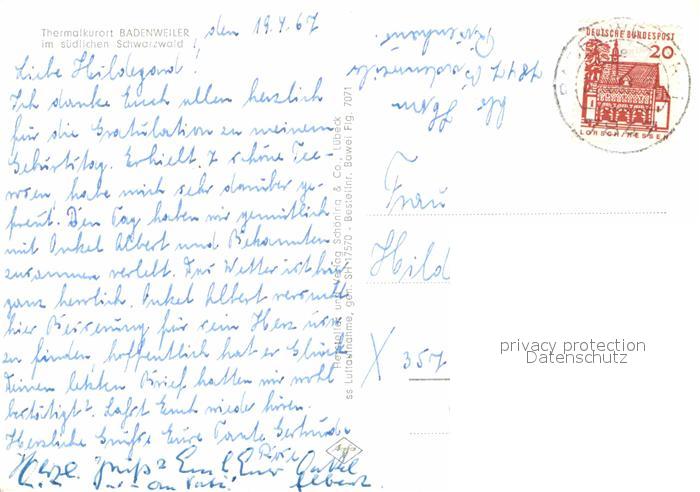 Thermalkurort BADENWEILER
im südlichen Schwarzwald
den 19.4.67
Liebe Hildegard!
Ich danke Euch allen herzlich
für die Gratulation zu meinem
Geburtstag. Erhielt 7 schöne Tee-
rosen, habe mich sehr darüber ge-
freut. Den Tag haben wir gemütlich
mit Onkel Albert und Bekannten
zusammen verlebt. Das Wetter ist hier
ganz herrlich. Onkel Albert versucht
hier Besserung für sein Herz usw.
zu finden, hoffentlich hat er Glück.
Deinen letzten Brief hatten wir wohl
bestätigt? Laßt Euch wieder hören.
Herzliche Grüße Eure Tante Gertrude
Herzl. Grüße Euer Onkel
Albert.
Hersteller und Verlag Schöning & Co., Lübeck
ss Luftaufnahme, gen. SH 17570 - Bestellnr. Bawei Fig. 7071
DEUTSCHE BUNDESPOST
20
LORSCH/HESSEN
Frau
Hild
X 357
privacy protection
Datenschutz